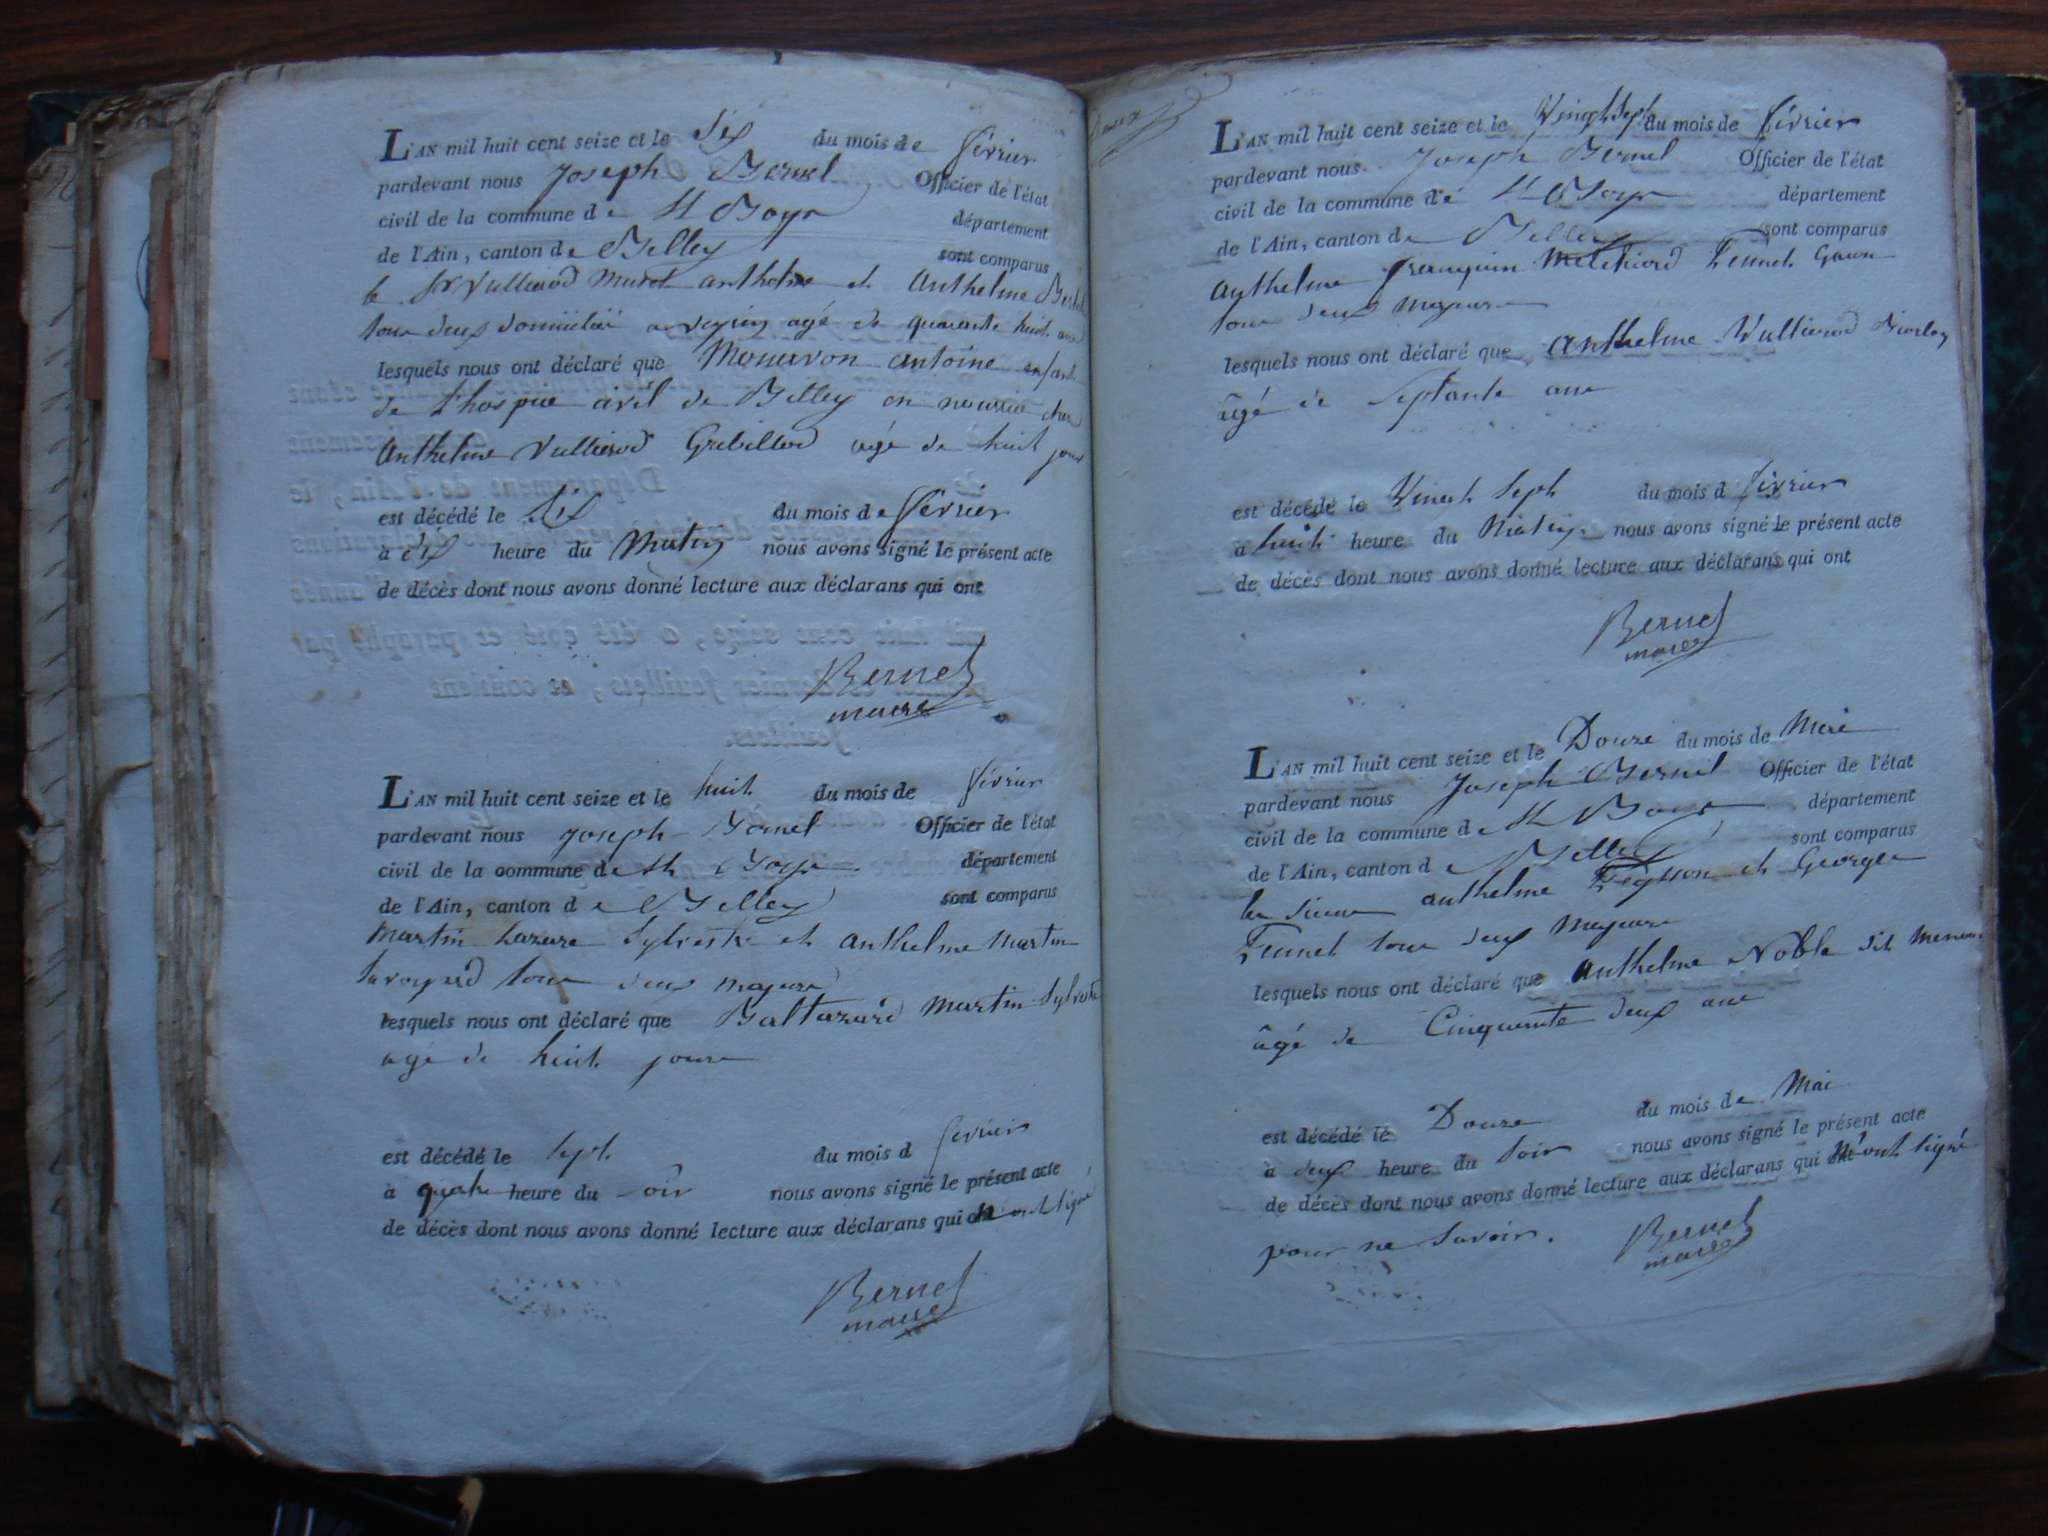 L'AN mil huit cent seize et le Six du mois de février
pardevant nous Joseph Bernel Officier de l'état
civil de la commune de St Boys département
de l'Ain, canton de Belley sont comparus
le Sr Vullierod Muret anthelme et Anthelme
tous deux domicilié a veyrin agé de quarente huit ans
lesquels nous ont déclaré que antoine enfant
de l'hospice civil de Belley en nourrice chez
Anthelme Vullierod Grebillod agé de huit jour
est décédé le Six du mois de février
à dix heure du Matin nous avons signé le présent acte
de décès dont nous avons donné lecture aux déclarans qui ont
Bernel
maire
L'AN mil huit cent seize et le huit du mois de février
pardevant nous Joseph Bernel Officier de l'état
civil de la commune de St Boys département
de l'Ain, canton de Belley sont comparus
Martin Lazare Sylvestre et anthelme Martin
Savoyard tous deux majeurs
lesquels nous ont déclaré que Baltazard Martin Sylvestre
agé de huit jours
est décédé le Sept du mois d février
à quatre heure du soir nous avons signé le présent acte
de décès dont nous avons donné lecture aux déclarans qui n'ont signé
Bernel
maire
Deux
L'AN mil huit cent seize et le Vingt Sept du mois de février
pardevant nous Joseph Bernel Officier de l'état
civil de la commune de St Boys département
de l'Ain, canton de Belley sont comparus
Anthelme Melchiord
tous deux majeurs
lesquels nous ont déclaré que Anthelme Vullierod
âgé de Septante ans
est décédé le Vingt Sept du mois d février
à huit heure du Matin nous avons signé le présent acte
de décès dont nous avons donné lecture aux déclarans qui ont
Bernel
maire
L'AN mil huit cent seize et le Douze du mois de Mai
pardevant nous Joseph Bernel Officier de l'état
civil de la commune de St Boys département
de l'Ain, canton de Belley sont comparus
les Sieurs anthelme et George
tous deux Majeurs
lesquels nous ont déclaré que Anthelme Noble dit
âgé de Cinquante deux ans
est décédé le Douze du mois de Mai
à deux heure du Soir nous avons signé le présent acte
de décès dont nous avons donné lecture aux déclarans qui n'ont signé
pour ne Savoir.
Bernel
maire